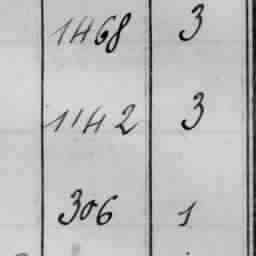 1468 3
1142 3
306 1